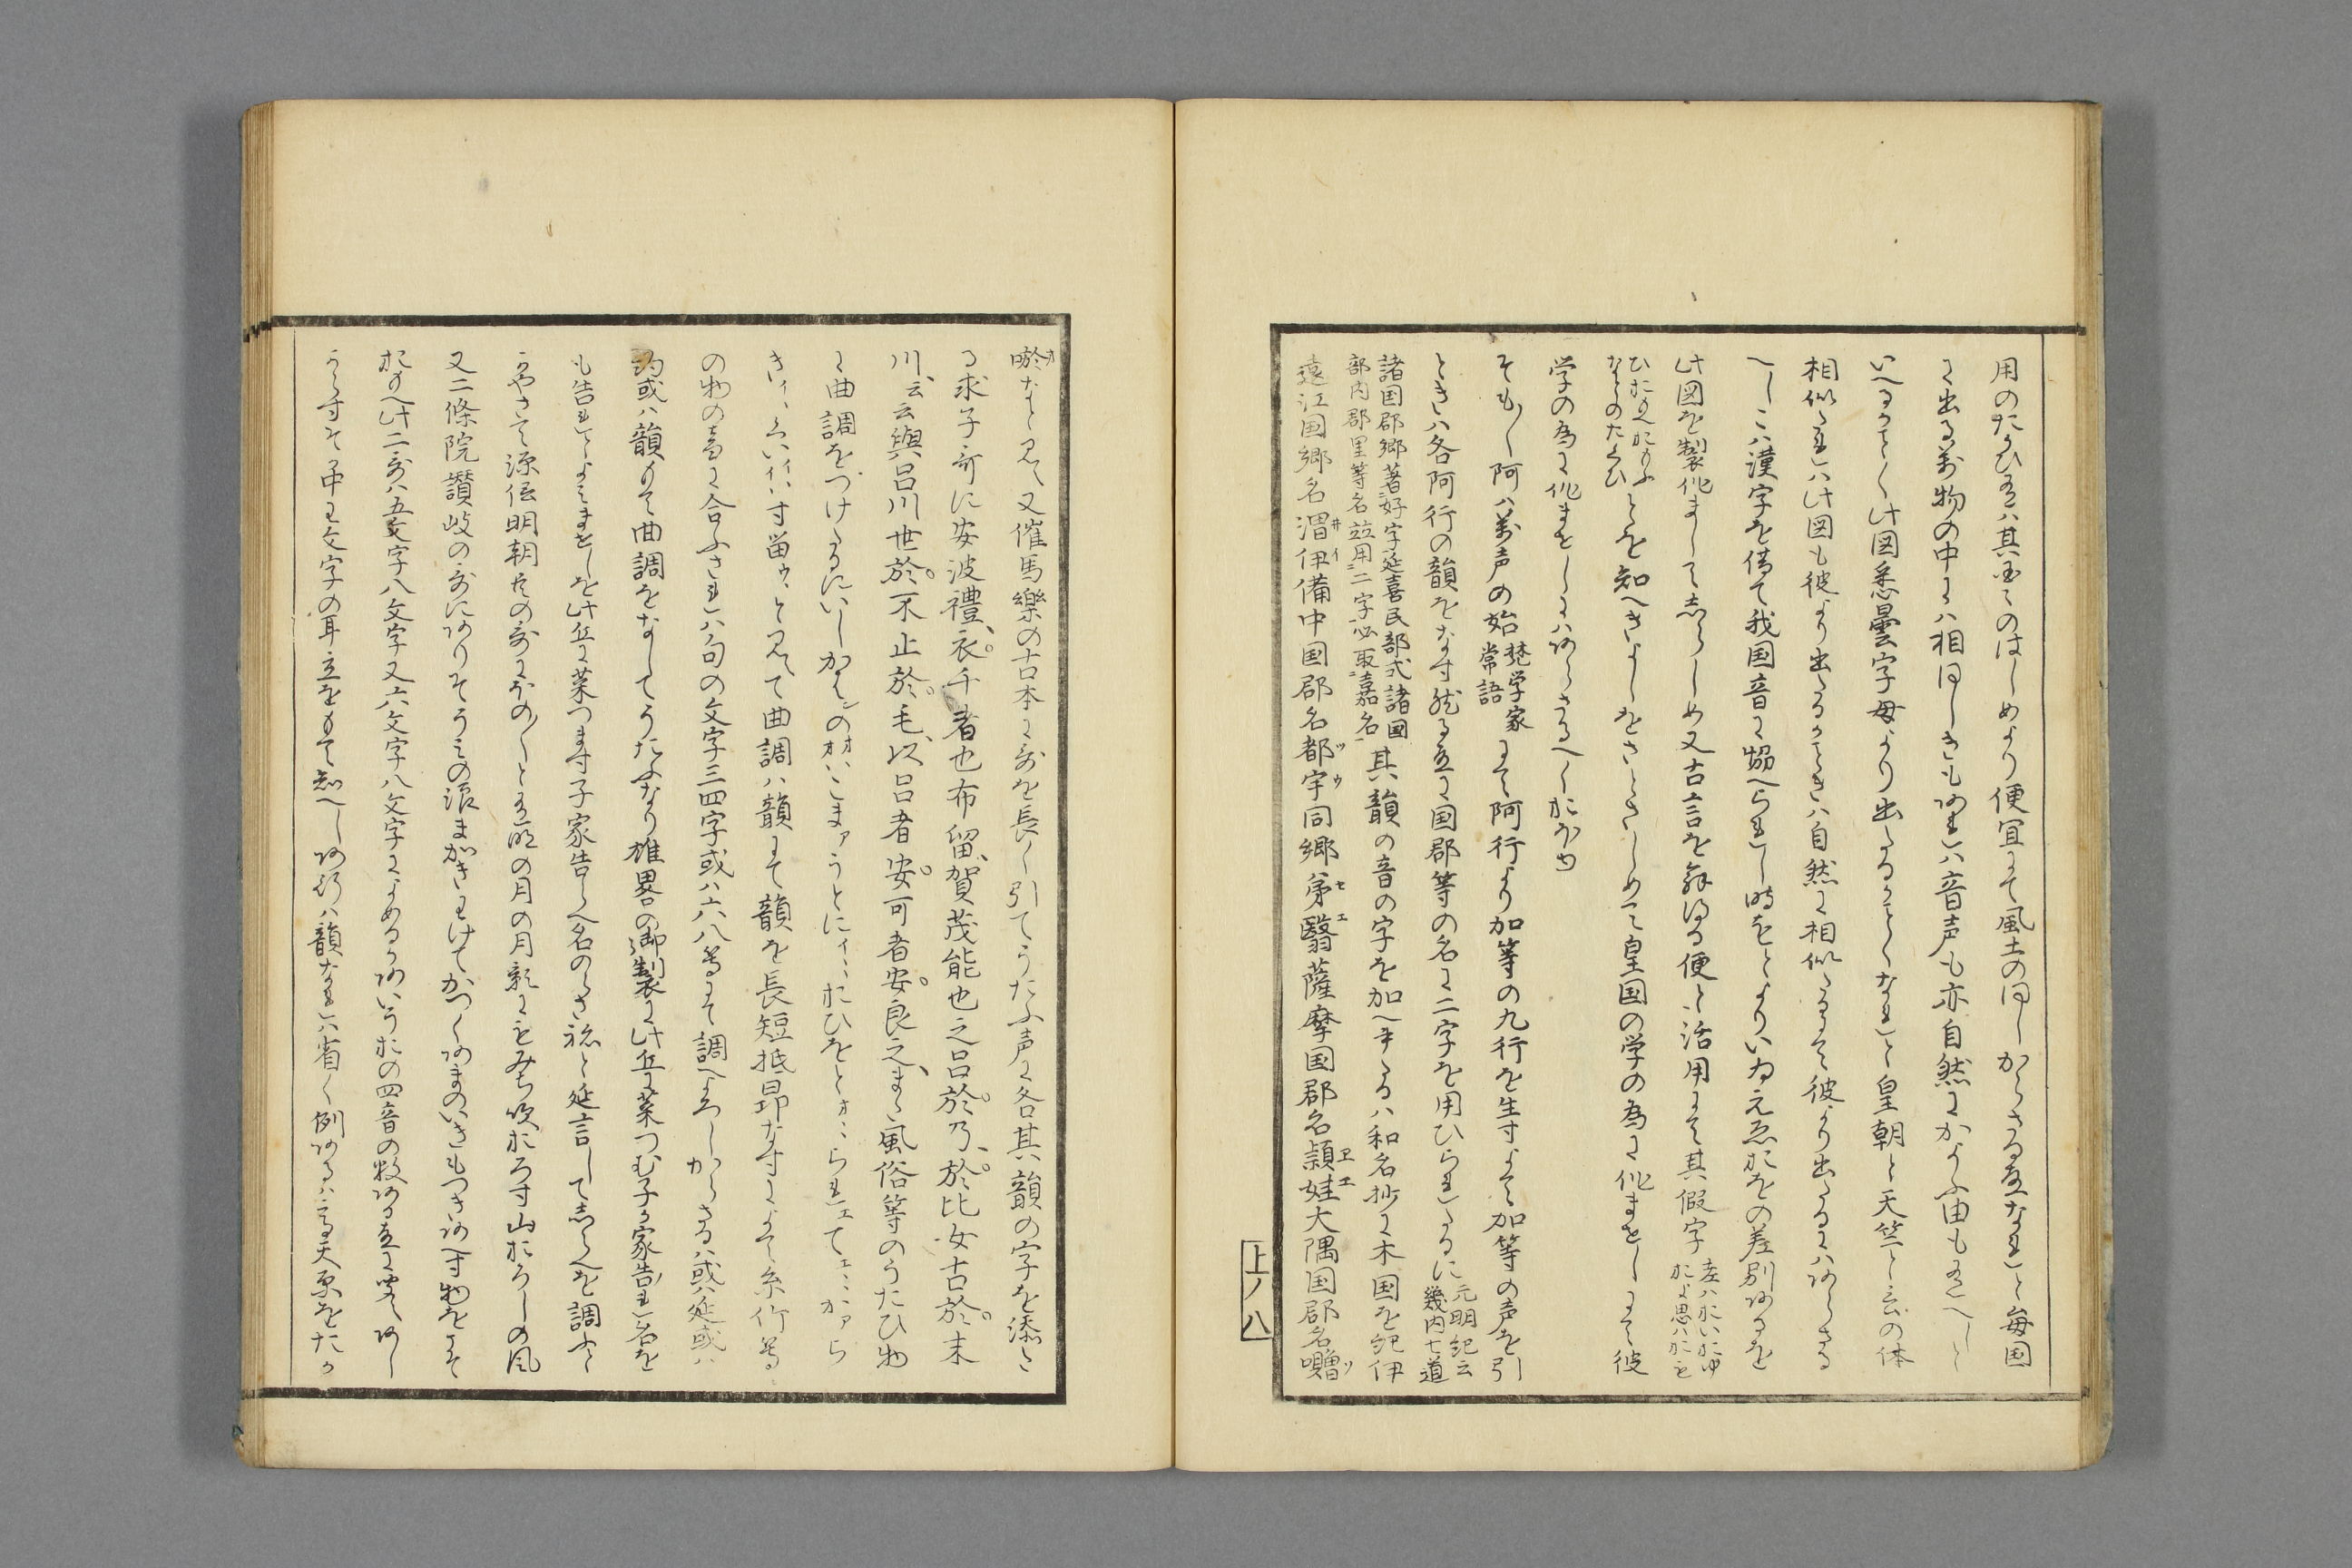 用のたかひ有ハ其国々のはしめより便宜にて風土の同しからさる故なれと毎国
に出る万物の中にハ相同しきもあれハ音声も亦自然にかよふ由も有へしと
いへるかことく此図悉曇字母より出たるかことくなれと皇朝と天竺と言の体
相似たれハ此図も彼より出たるかことき八自然に相似たるにて彼より出たるにハあらさる
へしこハ漢字を借て我国音に協へられし時をとよりいゐえゑおをの差別あるを
此図を製作ましてしらしめ又古言を解得る便と活用にて其假字
左ハおいおゆ
およ思ハおを
ひおもへおもふ
なとのたくひ
とを知へきよしをさとさしめて皇国の学の為に作ませしにて彼
学の為に作ませしにハあらさるへくおほゆ
そも〳〵阿ハ万声の始
梵学家
常語
にて阿行より加等の九行を生すよて加等の声を引
ときハ各阿行の韻をなす然る故に国郡等の名に二字を用ひられたるに
元明紀云
畿内七道
諸国郡郷著好字延喜民部式諸国
部内郡里等名並用二字必取嘉名
其韻の音の字を加へたるハ和名抄に木国を紀伊
遠江国郷名渭伊備中国郡名都宇同郷弟翳薩摩国郡名頴娃大隅国郡名囎
上ノ八
唹なと見ゆ又催馬樂の古本に哥を長く引てうたふ声に各其韻の字を添た
る求子哥に安波禮衣千者也布留賀茂能也之呂於乃於比女古於末
川云云與呂川世於不止於毛以呂者安可者安良之また風俗等のうたひ物
に曲調をつけたるにいしかはの
きィ
す留ゥ
と見えて曲調ハ韻にて韻を長短抵昂なすによて糸竹等
の物の音に合ふされハ句の文字三四字或ハ六八等にて調へよろしからさるハ或ハ延或ハ
約或ハ韻もて曲調をなしてうたふなり雄畧の御製に此丘に菜つむ子か家告れ名を
も告れとよみませしを此丘に菜つます子家告らへ名のらさ祢と延言してしらへを調ふ
かやさて源信明朝臣の哥にほの〳〵と有明の月の月影にもみち吹おろす山おろしの風
又二條院讃岐の哥にありそうみの浪まかきわけてかつくあまのいきもつきあへす物をこそ
おもへ此二哥ハ五文字八文字又六文字八文字によめるかあいうおの四音の数ある故に
らすそ中に文字の耳立をもて知へしあ行ハ韻なれハ省く例あるハ高天原をたか